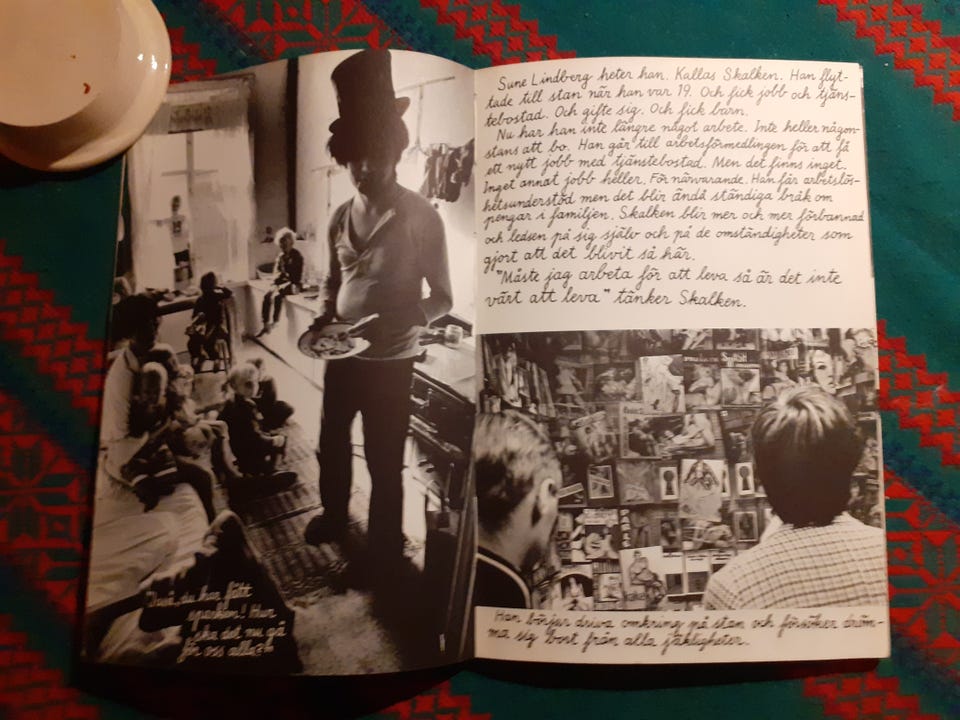 "Jaså, du har fått
sparken! Hur
ska det nu gå
för oss alla?"
Sune Lindberg heter han. Kallas Skalken. Han flyt-
tade till stan när han var 19. Och fick jobb och tjäns-
tebostad. Och gifte sig. Och fick barn.
Nu har han inte längre något arbete. Inte heller någon-
stans att bo. Han går till arbetsförmedlingen för att få
ett nytt jobb med tjänstebostad. Men det finns inget.
Inget annat jobb heller. För närvarande. Han får arbetslös-
hetsunderstöd men det blir ändå ständiga bråk om
pengar i familjen. Skalken blir mer och mer förbannad
och ledsen på sig själv och på de omständigheter som
gjort att det blivit så här.
"Måste jag arbeta för att leva så är det inte
värt att leva" tänker Skalken.
Han börjar driva omkring på stan och försöker dröm-
ma sig bort från alla jäkligheter.